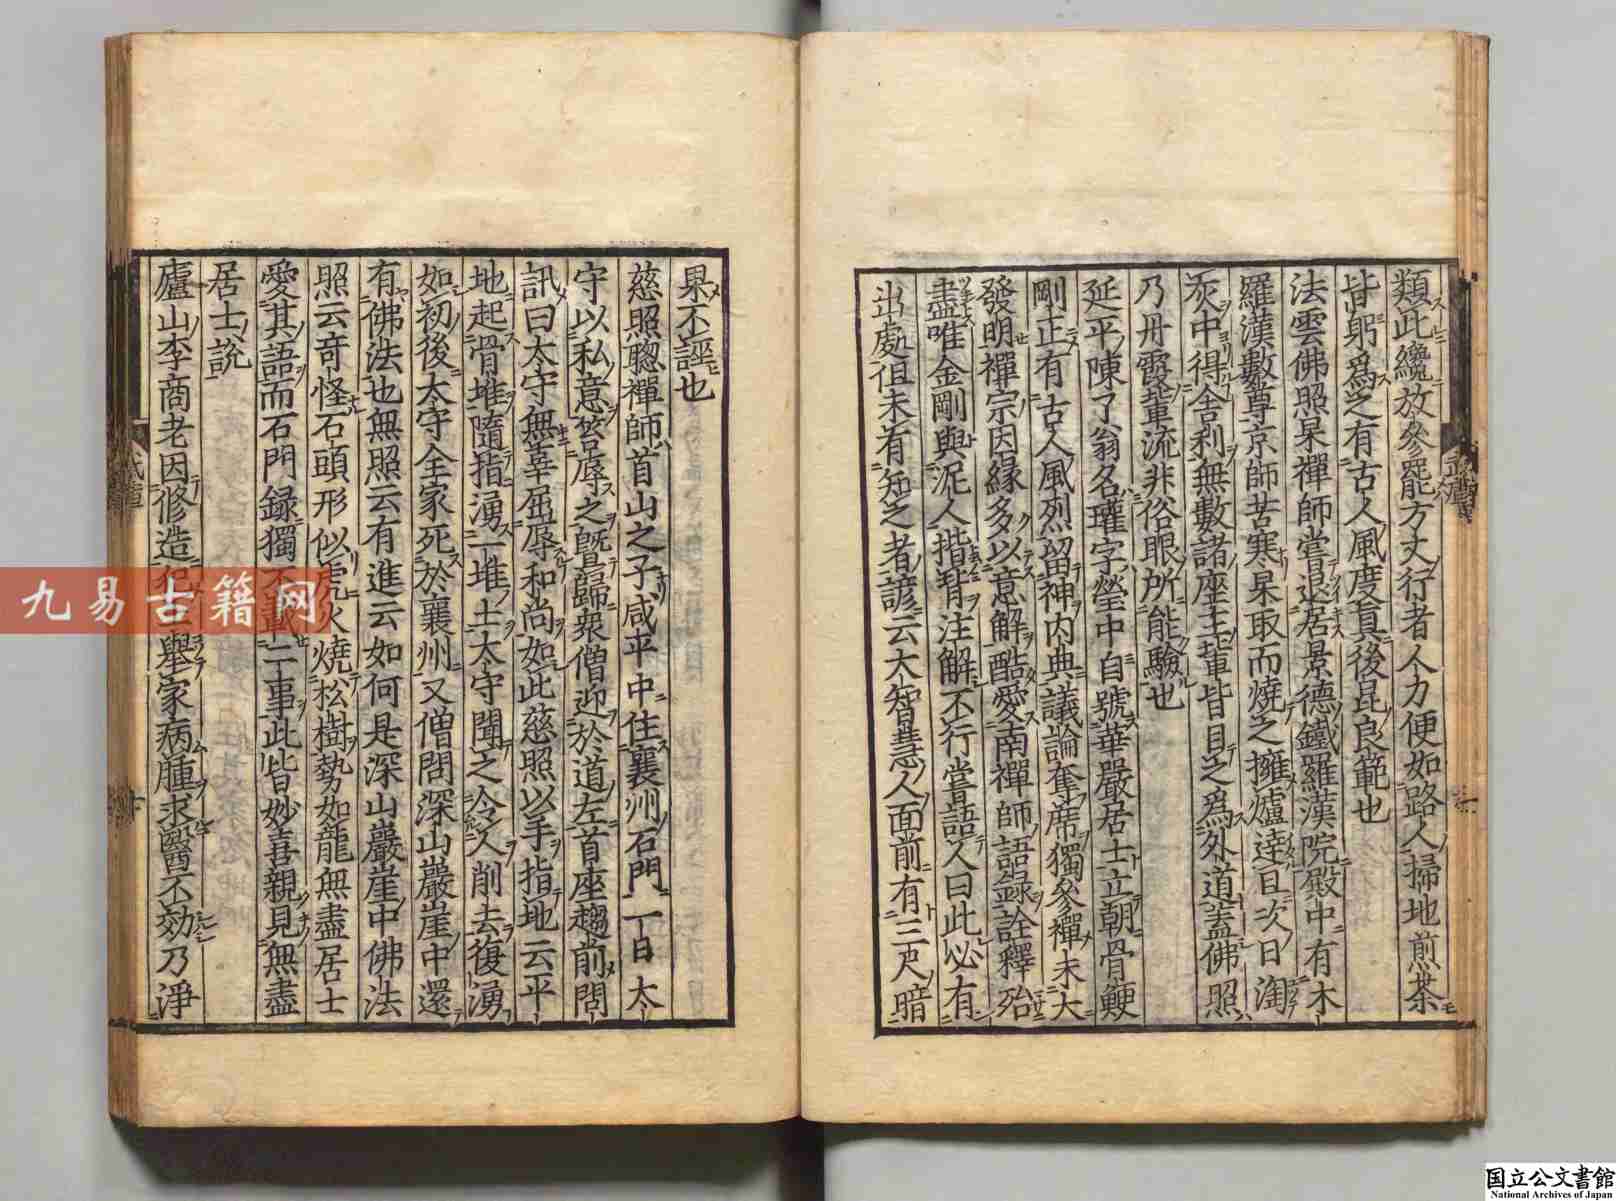 類此纔放參罷方丈行者人力便如路人掃地煎茶
皆躬爲之有古人風度眞後昆良範也
法雲佛照杲禪師嘗退居景德鐵羅漢院殿中有木
羅漢數尊京師苦寒杲取而燒之擁爐達旦次日淘
灰中得舍利無數諸座主輩皆目之爲外道蓋佛照
乃丹霞輩流非俗眼所能驗也
延平陳了翁名瓘字瑩中自號華嚴居士立朝骨鯁
剛正有古人風烈留神内典議論奪席獨參禪未大
發明禪宗因緣多以意解酷愛南禪師語録詮釋殆
盡唯金剛與泥人揩背注解不行嘗語人曰此必有
出處但未有知之者諺云大智慧人面前有三尺暗
果不誣也
慈照聰禪師首山之子咸平中住襄州石門一日太
守以私意笞辱之曁歸衆僧迎於道左首座趨前問
訊曰太守無辜屈辱和尚如此慈照以手指地云平
地起骨堆隨指湧一堆土太守聞之令人削去復湧
如初後太守全家死於襄州又僧問深山巖崖中還
有佛法也無照云有進云如何是深山巖崖中佛法
照云奇怪石頭形似虎火燒松樹勢如龍無盡居士
愛其語而石門録獨不載二事此皆妙喜親見無盡
居士説
廬山李商老因修造犯土舉家病腫求醫不効乃淨
九易古籍网
国立公文書館
National Archives of Japan